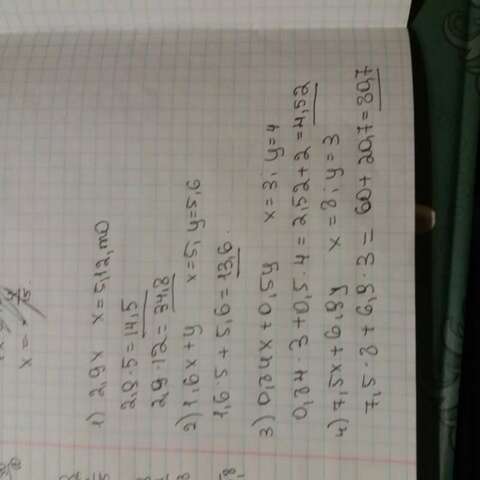 1) 2,9x x=5,12, то
2,9·5=14,5
2,9·12=34,8
2) 1,6x+y x=5; y=5,6
1,6·5+5,6=13,6.
3) 0,84x+0,5y x=3; y=4
0,84·3+0,5·4=2,52+2=4,52
4) 7,5x+6,9y x=8; y=3
7,5·8+6,9·3= 60+20,7=80,7